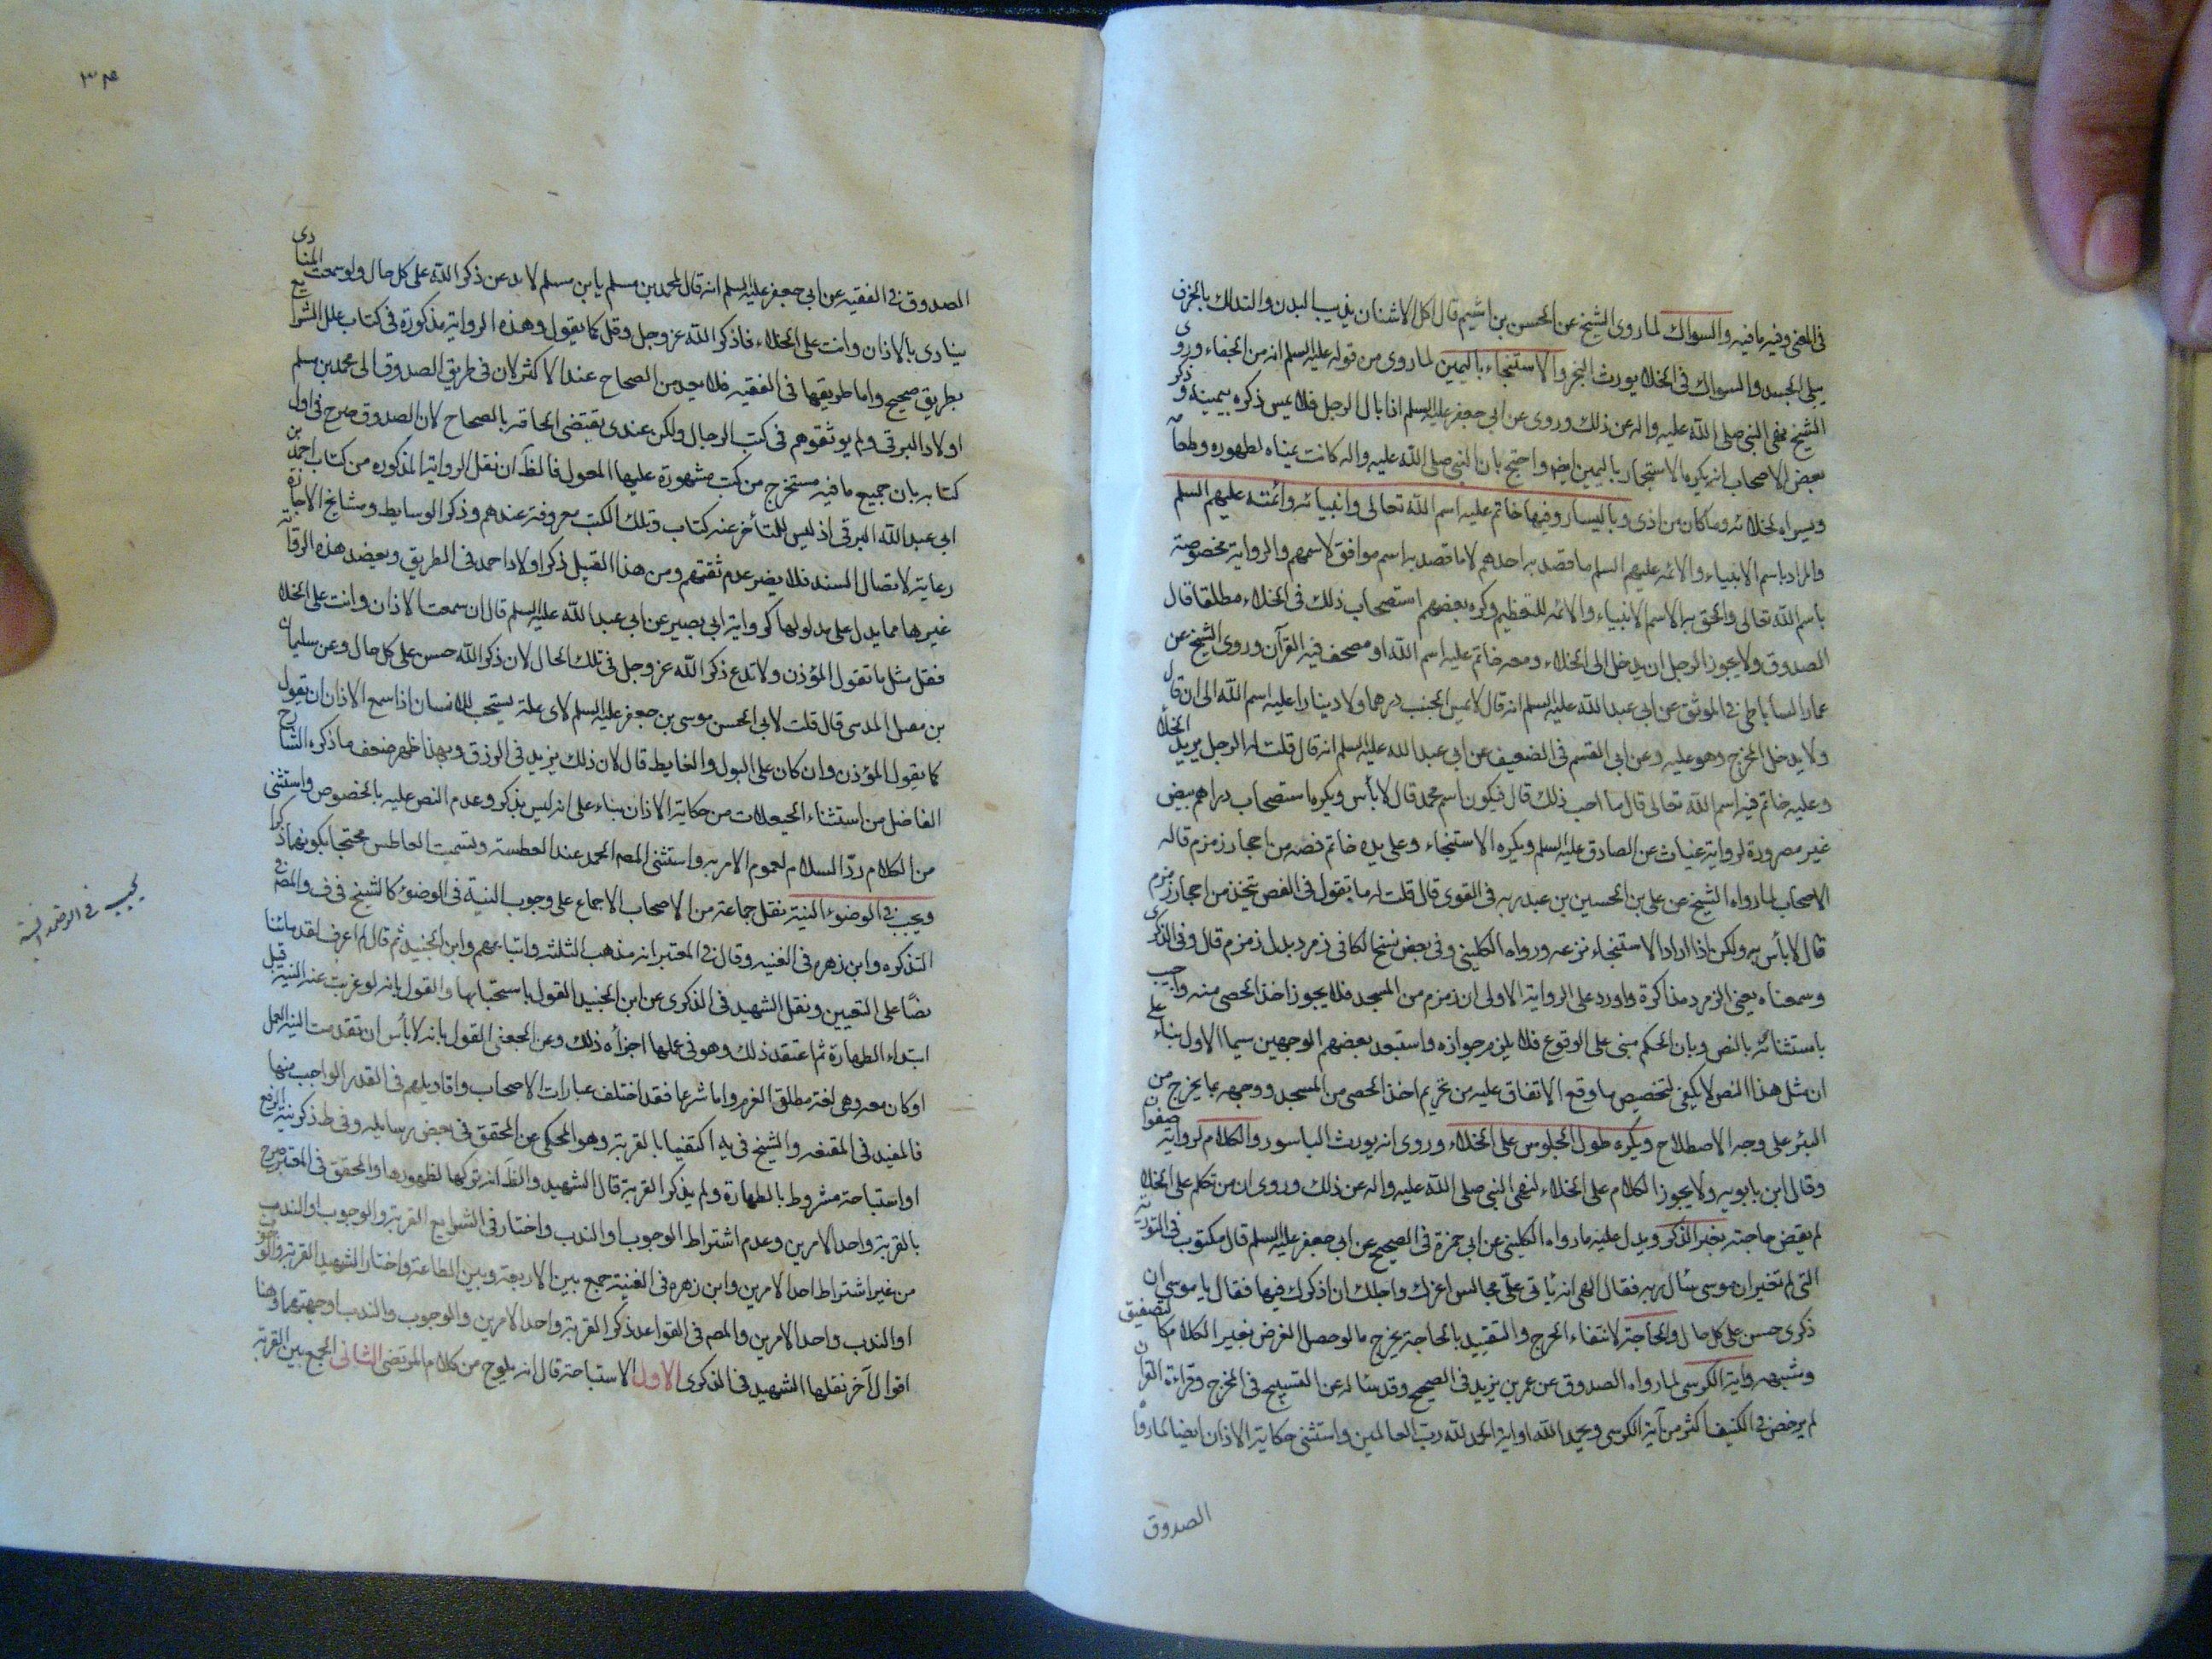 في المغنى وفيه ما فيه والسواك لما روى الشيخ عن الحسن بن اشيم قال اكل الاشنان يذيب البدن والتدلك بالخزف
يبلى الجسد والسواك في الخلاء يورث البخر والاستنجاء باليمين لما روى من قوله عليه السلم انه من الجفاء وروى
الشيخ نهى النبي صلى الله عليه واله عن ذلك وروى عن ابي جعفر عليه السلم اذا بال الرجل فلا يمس ذكره بيمينه وذكر
بعض الاصحاب انه يكره الاستجمار باليمين ايضا واحتج بان النبي صلى الله عليه واله كانت يمناه لطهوره وطعامه
ويسراه لخلائه وما كان من اذى وباليسار وفيها خاتم عليه اسم الله تعالى وانبيائه وائمته عليهم السلم
والمراد باسم الانبياء والائمه عليهم السلم ما قصد به احدهم لا ما قصد به اسم موافق لاسمهم والرواية مخصوصة
باسم الله تعالى والحق به الاسم الانبياء والائمه للتعظيم وكره بعضهم استصحاب ذلك في الخلاء مطلقا قال
الصدوق ولا يجوز الرجل ان يدخل الى الخلاء ومعه خاتم عليه اسم الله او مصحف فيه القرآن وروى الشيخ عن
عمار الساباطي في الموثق عن ابي عبد الله عليه السلم انه قال لا يمس الجنب درهما ولا دينارا عليه اسم الله الى ان قال
ولا يدخل المخرج وهو عليه وعن ابي القسم في الضعيف عن ابي عبد الله عليه السلم انه قال قلت له الرجل يريد الخلاء
وعليه خاتم فيه اسم الله تعالى قال ما احب ذلك قال فيكون اسم محمد قال لا بأس ويكره استصحاب دراهم بيض
غير مصرورة لرواية غياث عن الصادق عليه السلم ويكره الاستنجاء وعلى يده خاتم فضه من احجار زمزم قاله
الاصحاب لما رواه الشيخ عن علي بن الحسين بن عبد ربه في القوى قال قلت له ما تقول في الفص يتخذ من احجار زمزم
قال لا بأس به ولكن اذا اراد الاستنجاء نزعه ورواه الكليني وفي بعض نسخ الكافي زمرد بدل زمزم قال وفي الذكرى
وسمعناه يعنى الزمرد مذاكرة واورد على الرواية الاولى ان زمزم من المسجد فلا يجوز اخذ الحصى منه واجيب
باستثنائه بالنص وبان الحكم مبنى على الوقوع فلا يلزم جوازه واستبعد بعضهم الوجهين سيما الاول بناء على
ان مثل هذا النص لا يكفى لتخصيص ما وقع الاتفاق عليه من تحريم اخذ الحصى من المسجد ووجهه بما يخرج من
البئر على وجه الاصطلاح ويكره طول الجلوس على الخلاء وروى انه يورث الباسور والكلام لرواية صفوان
وقال ابن بابويه ولا يجوز الكلام على الخلاء لنهى النبي صلى الله عليه واله عن ذلك وروى ان من تكلم على الخلاء
لم يقض حاجته بغير الذكر ويدل عليه ما رواه الكليني عن ابي حمزة في الصحيح عن ابي جعفر عليه السلم قال مكتوب في التورية
التي لم تغير ان موسى سئال ربه فقال الهى انه يأتى علىّ مجالس اعزك واجلك ان اذكرك فيها فقال يا موسى ان
ذكرى حسن على كل حال والحاجة لانتفاء الحرج والتقييد بالحاجة يخرج ما لو حصل الغرض بغير الكلام كالتصفيق
وشبهه واية الكرسى لما رواه الصدوق عن عمر بن يزيد في الصحيح وقد سئاله عن التسبيح في المخرج وقراءة القرآن
لم يرخص في الكنيف اكثر من آية الكرسى ويحمد الله او اية الحمد لله رب العالمين واستثنى حكاية الاذان ايضا لما رواه
الصدوق
٣٤
الصدوق في الفقيه عن ابي جعفر عليه السلم انه قال لمحمد بن مسلم يا بن مسلم لا تدعن ذكر الله على كل حال ولو سمعت المنادى
ينادى بالاذان وانت على الخلاء فاذكر الله عز وجل وقل كما يقول وهذه الرواية مذكورة في كتاب علل الشرايع
بطريق صحيح واما طريقها في الفقيه فلا يعد من الصحاح عند الاكثر لان في طريق الصدوق الى محمد بن مسلم
اولاد البرقي ولم يوثقوهم في كتب الرجال ولكن عندى يقتضى الحاقه بالصحاح لان الصدوق صرح في اول
كتابه بان جميع ما فيه مستخرج من كتب مشهورة عليها المعول فالظ ان نقل الرواية المذكوره من كتاب احمد بن
ابي عبد الله البرقي اذ ليس للمتأخر عنه كتاب وتلك الكتب معروفة عندهم وذكر الوسايط ومشايخ الاجازة
رعاية لاتصال السند فلا يضر عدم ثقتهم ومن هذا القبيل ذكر اولاد احمد في الطريق ويعضد هذه الرواية
غيرها مما يدل على مدلولها كرواية ابي بصير عن ابي عبد الله عليه السلم قال ان سمعت الاذان وانت على الخلاء
فقل مثل ما تقول المؤذن ولا تدع ذكر الله عز وجل في تلك الحال لان ذكر الله حسن على كل حال وعن سليمان
بن مقبل المدسى قال قلت لابي الحسن موسى بن جعفر عليه السلم لاى علة يستحب للانسان اذا سمع الاذان ان تقول
كما يقول المؤذن وان كان على البول والغايط قال لان ذلك يزيد في الرزق وبهذا ظهر ضعف ما ذكره الشارح
الفاضل من استثناء الحيعلات من حكاية الاذان بناء على انه ليس بذكر وعدم النص عليه بالخصوص واستثنى
من الكلام ردّ السلام لعموم الامر به واستثنى المص الحمد عند العطسة وتسميت العاطس محتجا بكونهما ذكرا
ويجب في الوضوء النية نقل جماعة من الاصحاب الاجماع على وجوب النية في الوضوء كالشيخ في ف والمص في
التذكره وابن زهره في الغنيه وقال في المعتبر انه مذهب الثلثة واتباعهم وابن الجنيد ثم قال لم اعرف لقدمائنا
نصًا على التعيين ونقل الشهيد في الذكرى عن ابن الجنيد القول باستحبابها والقول بانه لو عزبت عنه النية قبل
ابتداء الطهارة ثم اعتقد ذلك وهو في عملها اجزأه ذلك وعن الجعفى القول بانه لا بأس ان تقدمت النية العمل
او كان معه وهي لغة مطلق العزم واما شرعا فقد اختلف عبارات الاصحاب واقاويلهم في القدر الواجب منها
فالمفيد في المقنعه والشيخ في يه اكتفيا بالقربة وهو المحكى عن المحقق في بعض رسايله وفي ط ذكر نية الرفع
او استباحة مشروط بالطهارة ولم يذكر القربة قال الشهيد والظ انه تركها لظهورها والمحقق في المعتبر صرح
بالقربة واحد الامرين وعدم اشتراط الوجوب او الندب واختار في الشرايع القربة والوجوب او الندب
من غير اشتراط احد الامرين وابن زهره في الغنية جمع بين الاربعة وبين الطاعة واختار الشهيد القربة والوجوب
او الندب واحد الامرين والمص في القواعد ذكر القربة واحد الامرين والوجوب والندب او جهتهما وهنا
اقوال آخر نقلها الشهيد في الذكرى الاول الاستباحة قال انه يلوح من كلام المرتضى الثانى الجمع بين القربة